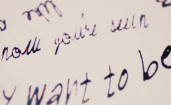 now you've seen
y want to be